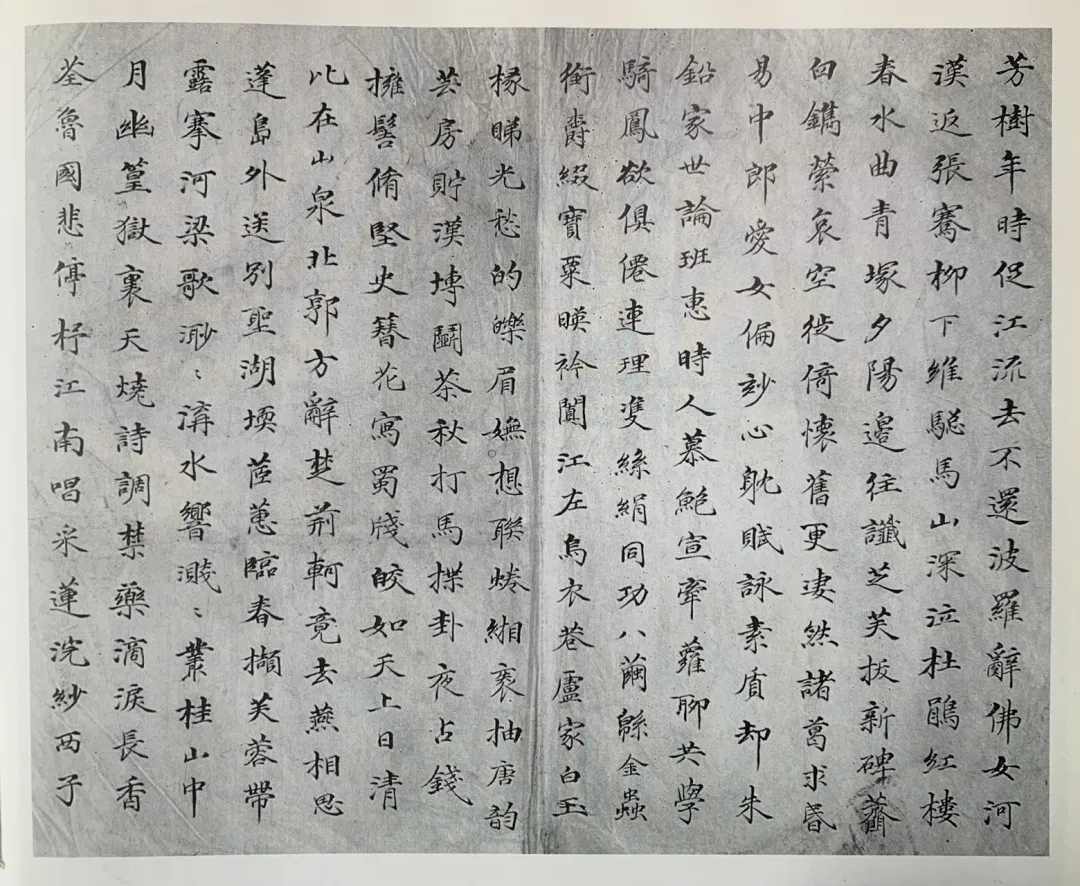 芳樹年時促江流去不還波羅辭佛女河
漢返張騫柳下維驄馬山深泣杜鵑紅樓
春水曲青塚夕陽邊往讖芝芙扳新碑薺
白鐫縈哀空徙倚懷舊更凄然諸葛求昏
易中郎愛女偏玅心躭賦詠素盾却朱
鉛家世論班惠時人慕鮑宣牽蘿聊共學
騎鳳欲俱僊連理雙絲絹同功八繭緜金蟲
銜爵綴寶粟暎衿闐江左烏衣巷盧家白玉
椽睇光愁的皪眉嫵想聯蜷緗袠抽唐韵
芸房貯漢塼鬭茶秋打馬揲卦夜占錢
擁髻脩堅史簪花寫蜀牋皎如天上日清
比在山泉北郭方辭楚荊軻竟去燕相思
蓬島外送別聖湖堧茝蕙臨春擷芙蓉帶
露搴河梁歌渺〻溝水響濺〻叢桂山中
月幽篁獄裏天燒詩調禁藥滴淚長香
荃魯國悲停杼江南唱采蓮浣紗西子